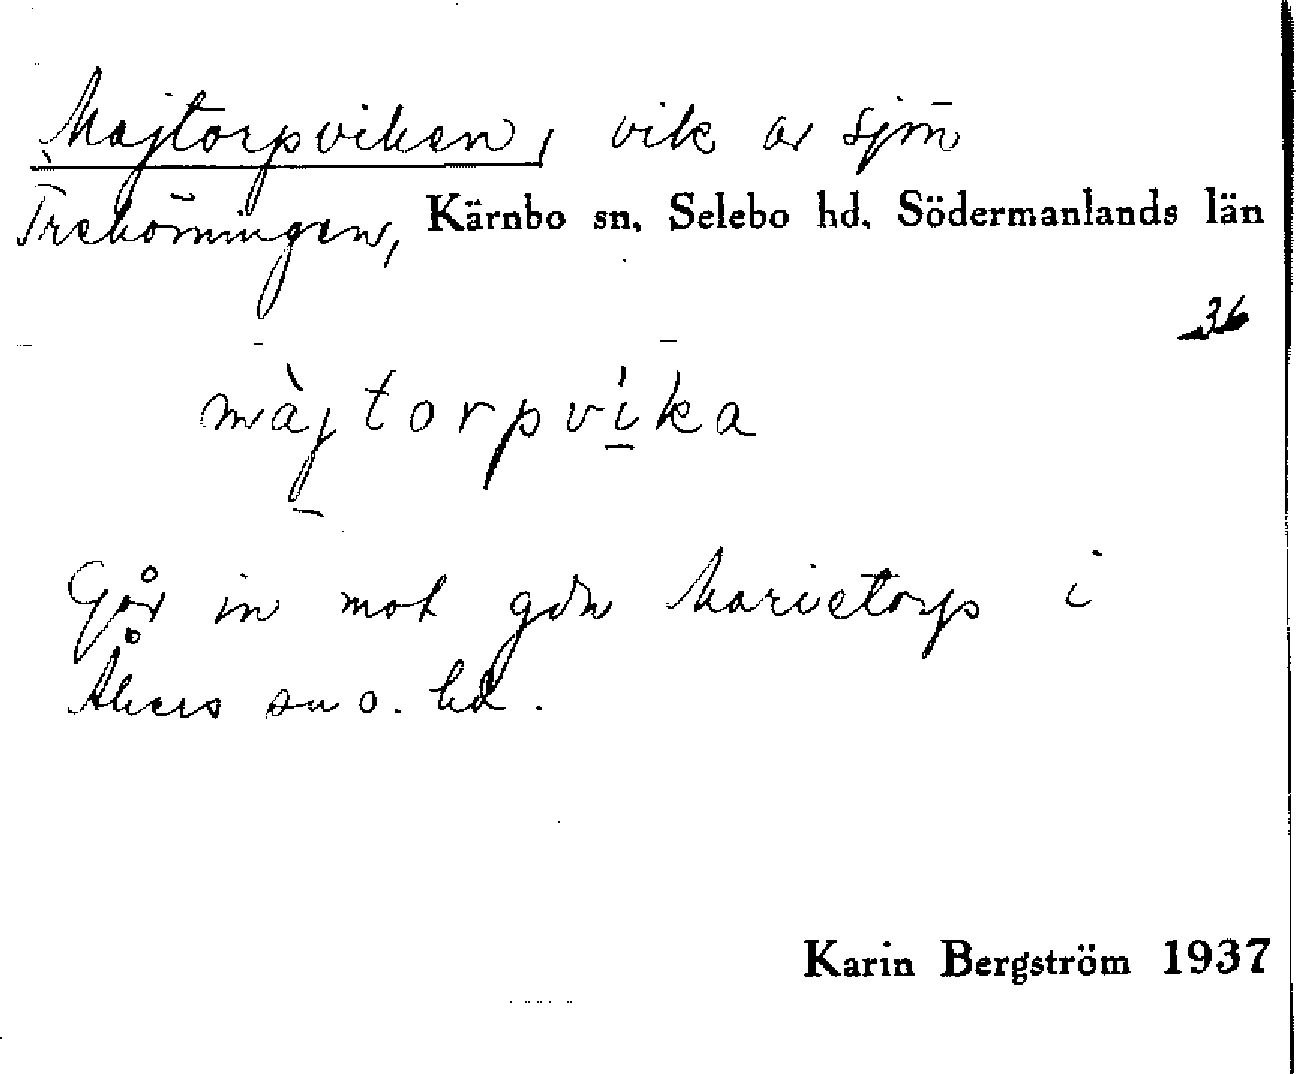 Majtorpviken, vik av sjön
Trehörningen, Kärnbo sn. Selebo hd. Södermanlands län
36
màjtorpvi̱ka
Går in mot gdn Marietorp i
Åkers sn o. hd.
Karin Bergström 1937